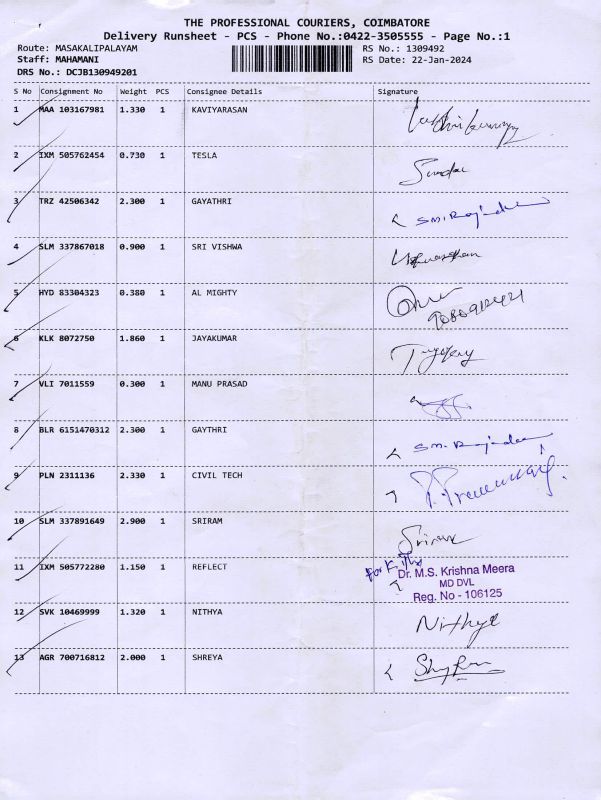 THE PROFESSIONAL COURIERS, COIMBATORE
Delivery Runsheet - PCS - Phone No.:0422-3505555 - Page No.:1
Route: MASAKALIPALAYAM RS No.: 1309492
Staff: MAHAMANI RS Date: 22-Jan-2024
DRS No.: DCJB130949201
S No Consignment No Weight PCS Consignee Details Signature
1 MAA 103167981 1.330 1 KAVIYARASAN
2 IXM 505762454 0.730 1 TESLA
3 TRZ 42506342 2.300 1 GAYATHRI
4 SLM 337867018 0.900 1 SRI VISHWA
5 HYD 83304323 0.380 1 AL MIGHTY
6 KLK 8072750 1.860 1 JAYAKUMAR
7 VLI 7011559 0.300 1 MANU PRASAD
8 BLR 6151470312 2.300 1 GAYTHRI
9 PLN 2311136 2.330 1 CIVIL TECH
10 SLM 337891649 2.900 1 SRIRAM Sriram
11 IXM 505772280 1.150 1 REFLECT For
Dr. M.S. Krishna Meera
MD DVL
Reg. No - 106125
12 SVK 10469999 1.320 1 NITHYA Nithya
13 AGR 700716812 2.000 1 SHREYA